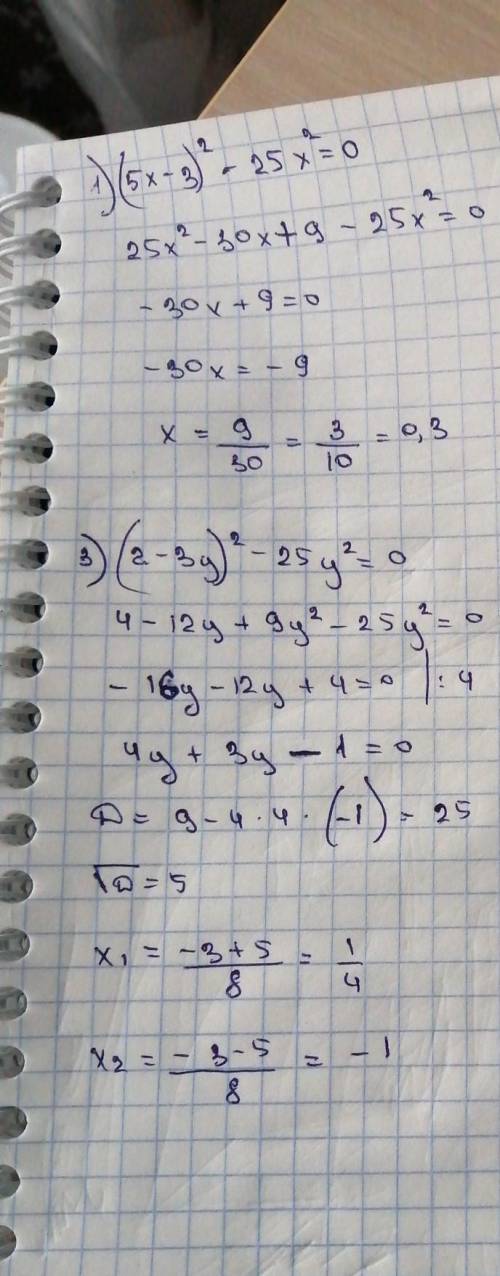 1) (5x-3)² - 25x² = 0
25x² - 30x + 9 - 25x² = 0
-30x + 9 = 0
-30x = -9
x = 9/30 = 3/10 = 0,3
3) (2-3y)² - 25y² = 0
4 - 12y + 9y² - 25y² = 0
- 16y - 12y + 4 = 0 | : 4
4y + 3y - 1 = 0
D = 9 - 4 · 4 · (-1) = 25
√D = 5
x₁ = (-3+5)/8 = 1/4
x₂ = (-3-5)/8 = -1